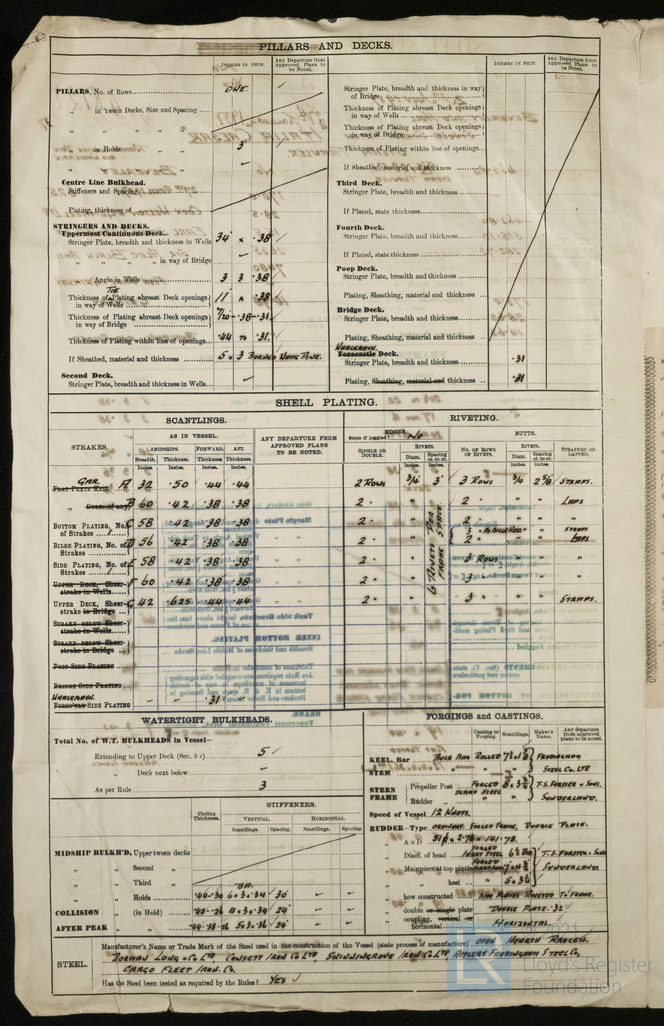 PILLARS AND DECKS.
INCHES IN SHIP.
Any Departure from Approved Plans to be Noted.
PILLARS, No. of Rows ONE.
" in 'tween Decks, Size and Spacing
" " "
" in Holds 3"
" "
Centre Line Bulkhead.
Stiffeners and Spacing
Plating, thickness of
STRINGERS AND DECKS.
Uppermost Continuous Deck.
Stringer Plate, breadth and thickness in Wells 34 x .38
" " " " in way of Bridge
Angle in Wells 3 3 .38
Thickness of TIE Plating abreast Deck openings in way of Wells 11 x .38
Thickness of Plating abreast Deck openings in way of Bridge 7/20 - .38 - .31
Thickness of Plating within line of openings .44 to .31
If Sheathed, material and thickness 5 x 3 BORNEO WHITE PINE.
Second Deck.
Stringer Plate, breadth and thickness in Wells
INCHES IN SHIP.
Any Departure from Approved Plans to be Noted.
Stringer Plate, breadth and thickness in way of Bridge
Thickness of Plating abreast Deck openings in way of Wells
Thickness of Plating abreast Deck openings in way of Bridge
Thickness of Plating within line of openings
If Sheathed, material and thickness
Third Deck.
Stringer Plate, breadth and thickness
If Plated, state thickness
Fourth Deck.
Stringer Plate, breadth and thickness
If Plated, state thickness
Poop Deck.
Stringer Plate, breadth and thickness
Plating, Sheathing, material and thickness
Bridge Deck.
Stringer Plate, breadth and thickness
Plating, Sheathing, material and thickness
WHALEBACK
Forecastle Deck.
Stringer Plate, breadth and thickness .31
Plating, Sheathing, material and thickness .31
SHELL PLATING.
SCANTLINGS.
RIVETING.
STRAKES.
AS IN VESSEL.
AMIDSHIPS. FORWARD. AFT.
Breadth. Thickness. Thickness. Thickness.
Inches. Inches. Inches. Inches.
ANY DEPARTURE FROM APPROVED PLANS TO BE NOTED.
EDGES
State if joggled? No
SINGLE OR DOUBLE.
RIVETS.
Diam. Spacing cr. to cr.
Inches. Inches.
BUTTS.
NO. OF ROWS OF RIVETS.
RIVETS.
Diam. Spacing cr. to cr.
Inches. Inches.
STRAPPED OR LAPPED.
GAR. A 32 .50 .44 .44 2 ROWS 3/4 3" 3 ROWS 3/4 2 5/8 STRAPS.
" B 60 .42 .38 .38 2 " 2 " " " LAPS
BOTTOM PLATING, No. of Strakes C 58 .42 .38 .38 2 "
BILGE PLATING, No. of Strakes D 56 .42 .38 .38 2 "
SIDE PLATING, No. of Strakes E 58 .42 .38 .38 2 " 3 ROWS " " "
UPPER DECK, Sheer-strake in Wells F 60 .42 .38 .38 2 " 3 " " " "
UPPER DECK, Sheer-strake in Bridge G 42 .625 .44 .44 2 " 3 " " " STRAPS.
6 RIVETS PER FRAME SPACE
STRAKE BELOW Sheer-strake in Wells
STRAKE BELOW Sheer-strake in Bridge
POOP SIDE PLATING
BRIDGE SIDE PLATING
WHALEBACK
Forec'tle SIDE PLATING - - .31 -
WATERTIGHT BULKHEADS.
Total No. of W.T. BULKHEADS in Vessel—
Extending to Upper Deck (Sec. 3 c) 5
" Deck next below
As per Rule 3
STIFFENERS.
Plating Thickness.
VERTICAL HORIZONTAL
Scantlings. Spacing. Scantlings. Spacing.
MIDSHIP BULKH'D, Upper tween decks
" " Second "
" " Third "
" " Holds .44-.30 6 x 3 x .34 30"
COLLISION " (in Hold) 24"
AFTER PEAK " " 5 x 3 x .36 24"
FORGINGS AND CASTINGS.
Casting or Forging. Scantlings. Maker's Name. Any departure from approved plans to be noted.
KEEL, Bar ROLLED
STEM
FRODINGHAM
STEEL CO. LTD
STERN FRAME Propeller Post FORGED
Rudder "
T.S. FORSTER & SONS.
SUNDERLAND.
Speed of Vessel 12 KNOTS
RUDDER—Type ORDINARY. FORGED FRAME, DOUBLE PLATE.
A x D 51.0 x 2.78 = 141.78
" Diam. of head FORGED INGOT STEEL
" Mainpiece at top pintle FORGED
" " heel " 5 x 3 1/4
T.S. FORSTER & SONS
SUNDERLAND.
" how constructed SIDE PLATES RIVETED TO FRAME.
" double or single plate DOUBLE PLATE .32
" coupling, vertical or horizontal HORIZONTAL.
STEEL.
Manufacturer's Name or Trade Mark of the Steel used in the construction of the Vessel (state process of manufacture) OPEN HEARTH PROCESS.
DORMAN LONG & CO LTD CONSETT IRON CO LTD SKINNINGROVE IRON CO LTD, APPLEBY FRODINGHAM STEEL CO,
CARGO FLEET IRON. CO.
Has the Steel been tested as required by the Rules? YES
2021
Lloyd's Register
Foundation